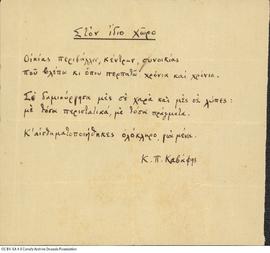 Στὸν ἴδιο χῶρο
Οἰκίας περιβάλλον, κέντρων, συνοικίας
ποῦ βλέπω κι ὅπου περπατῶ· χρόνια καὶ χρόνια.
Σὲ δημιούργησα μὲς σὲ χαρὰ καὶ μὲς σὲ λύπες:
μὲ τόσα περιστατικά, μὲ τόσα πράγματα.
Κ' αἰσθηματοποιήθηκες ὁλόκληρο, γιὰ μένα.
Κ. Π. Καβάφης